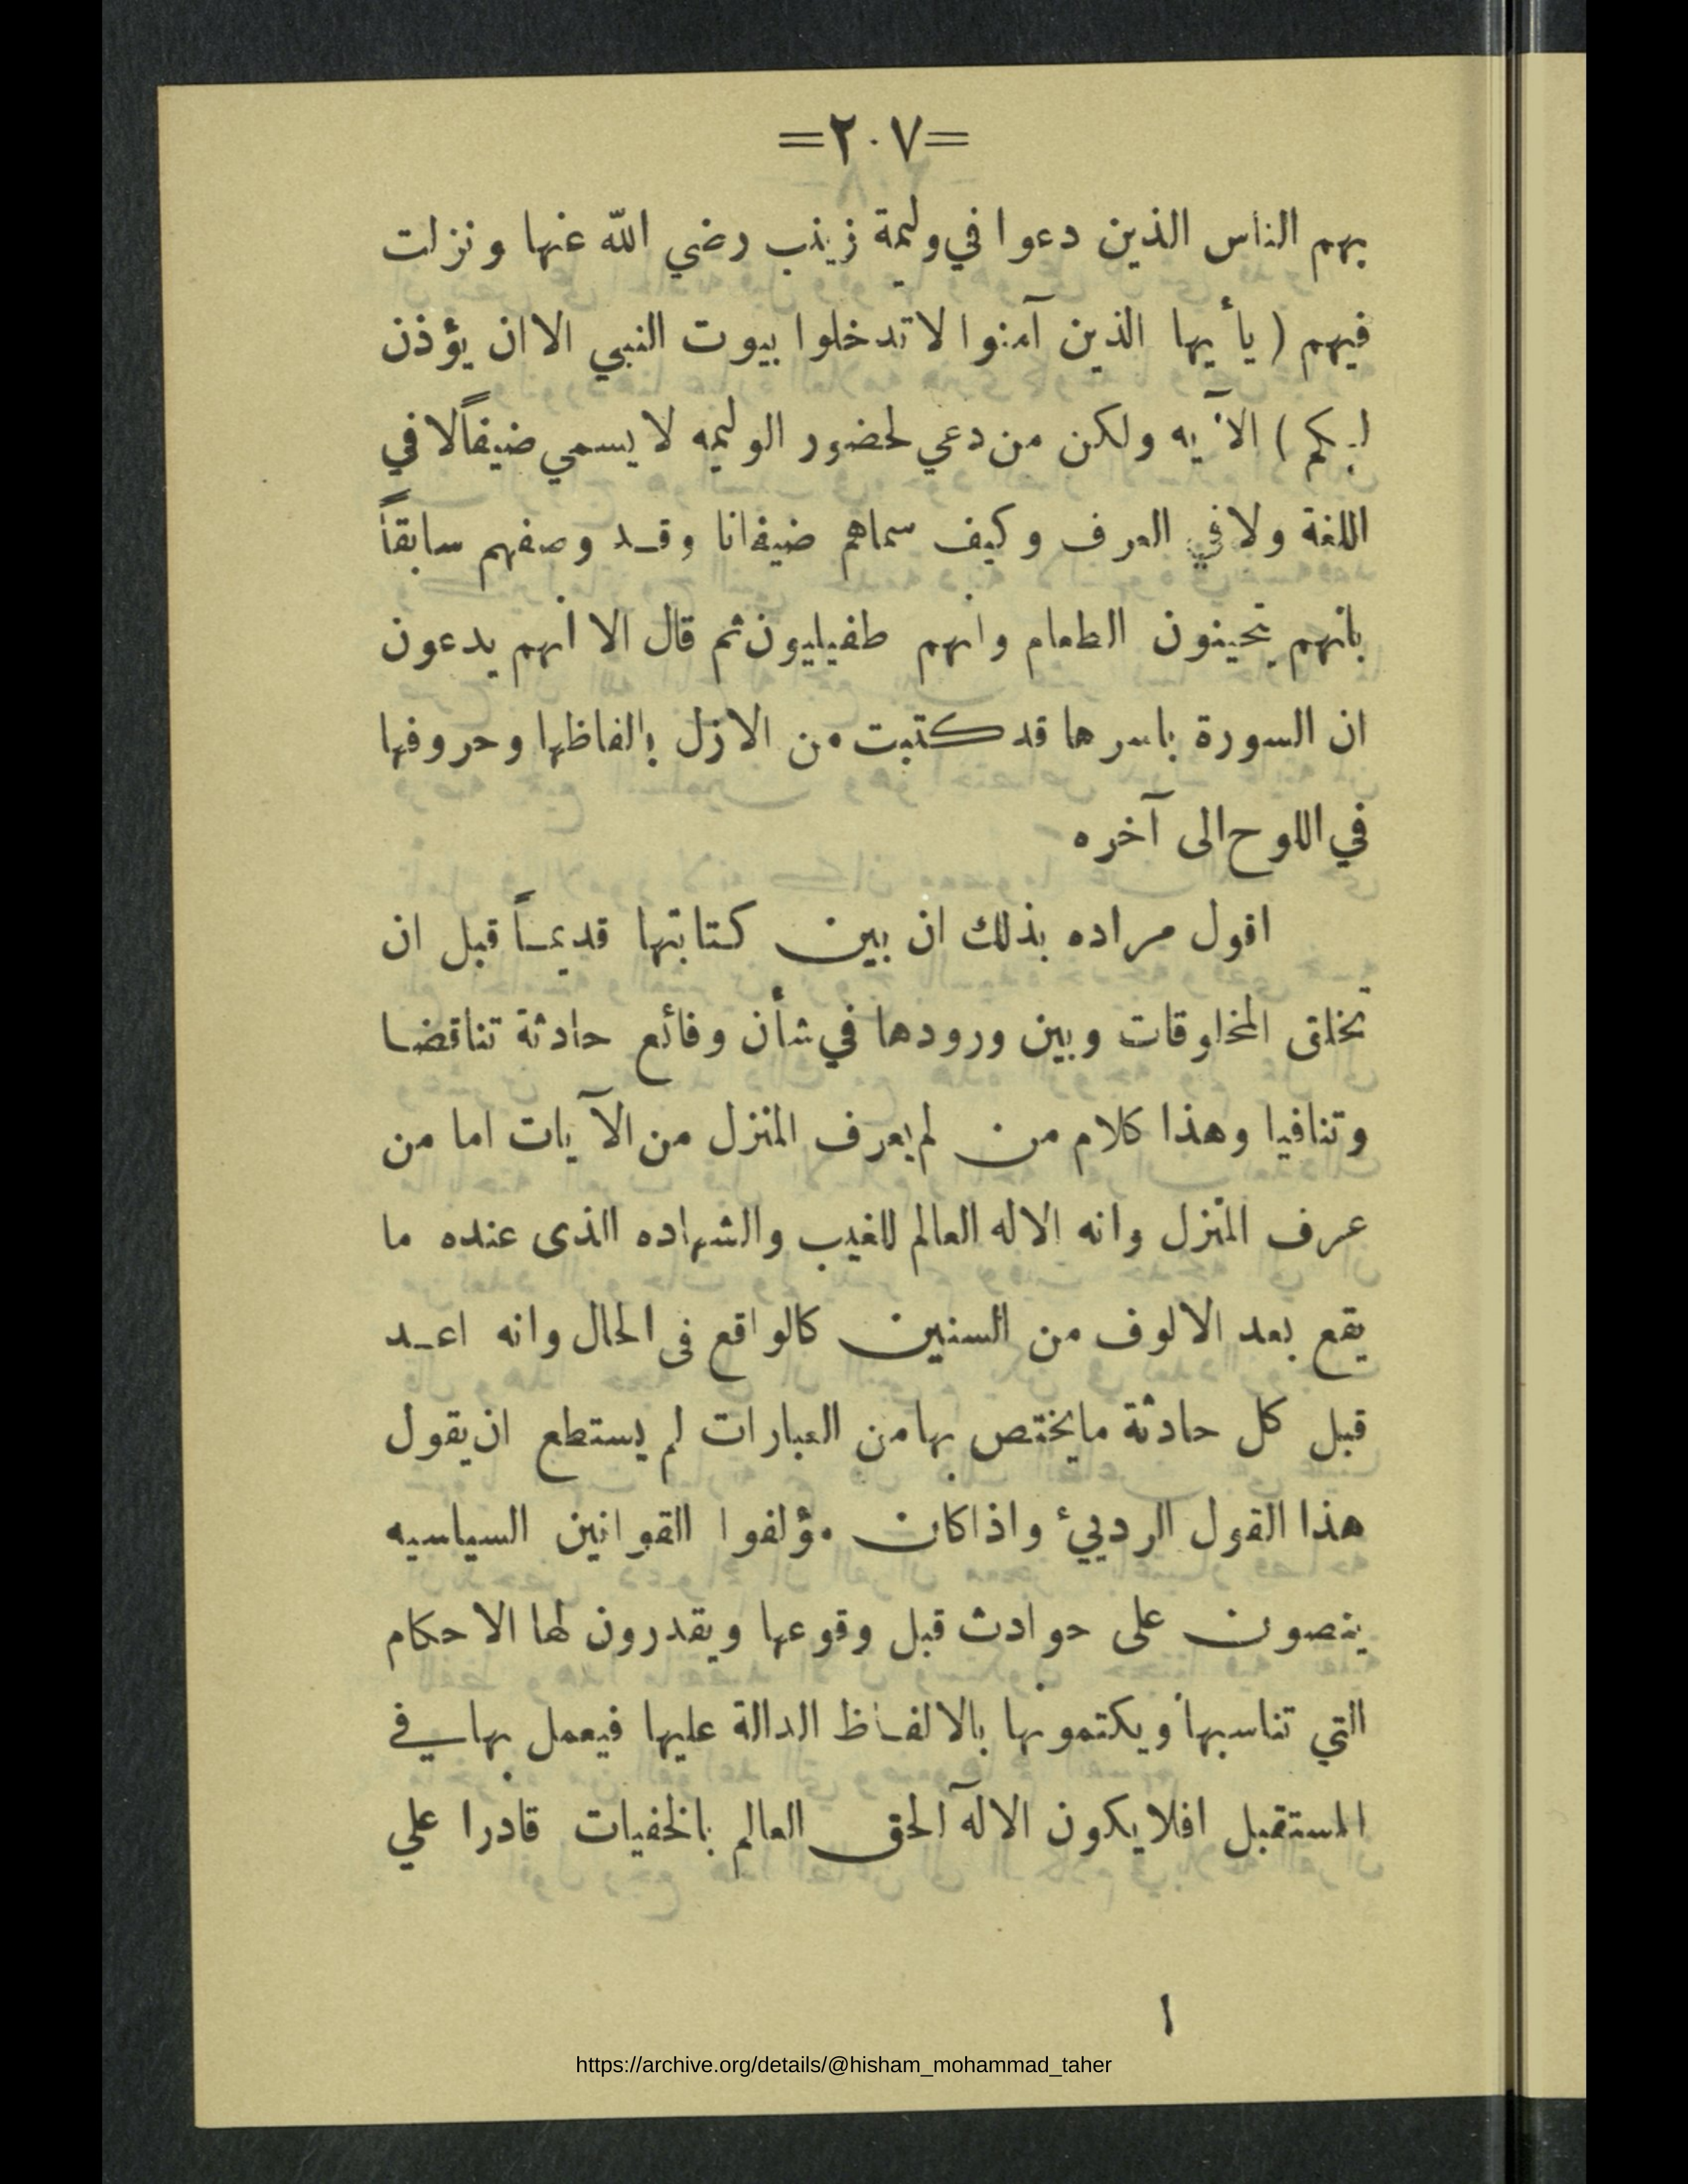 =٢٠٧=
بهم الناس الذين دعوا في وليمة زينب رضي الله عنها ونزلت
فيهم ( يأيها الذين آمنوا لا تدخلوا بيوت النبي الا ان يؤذن
لكم ) الآيه ولكن من دعي لحضور الوليمه لا يسمي ضيفاً لا في
اللغة ولا في العرف وكيف سماهم ضيفانا وقد وصفهم سابقاً
بانهم يتحينون الطعام وانهم طفيليون ثم قال الا أنهم يدعون
ان السورة باسرها قد كتبت من الازل بالفاظها وحروفها
في اللوح الى آخره
اقول مراده بذلك ان بين كتابتها قديماً قبل ان
تخلق المخلوقات وبين ورودها في شأن وقائع حادثة تناقضا
وتنافيا وهذا كلام من لم يعرف المنزل من الآيات اما من
عرف المنزل وانه الاله العالم للغيب والشهاده الذى عنده ما
يقع بعد الالوف من السنين كالواقع فى الحال وانه اعد
قبل كل حادثة ما يختص بها من العبارات لم يستطع ان يقول
هذا القول الرديئ واذا كان مؤلفوا القوانين السياسيه
ينصون على حوادث قبل وقوعها ويقدرون لها الاحكام
التي تناسبها ويكتمونها بالالفاظ الدالة عليها فيعمل بها في
المستقبل افلا يكون الاله الحق العالم بالخفيات قادرا علي
١
https://archive.org/details/@hisham_mohammad_taher